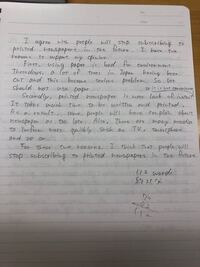 I agree with people will stop subscribing to
printed newspapers in the future. I have two
reasons to support my opinion.
First, using paper is bad for environment.
Therefore, a lot of trees in Japan having been
cut and this become serious problem. So we
should not use paper.
Secondly, printed newspaper is
It takes much time to be written and printed.
As a result, some people will have complain about
newspaper on the late. Also, there are many medias
to inform more quickly such as TV, smartphone,
and so on.
For these two reasons, I think that people will
stop subscribing to printed newspapers in the future.
112 words